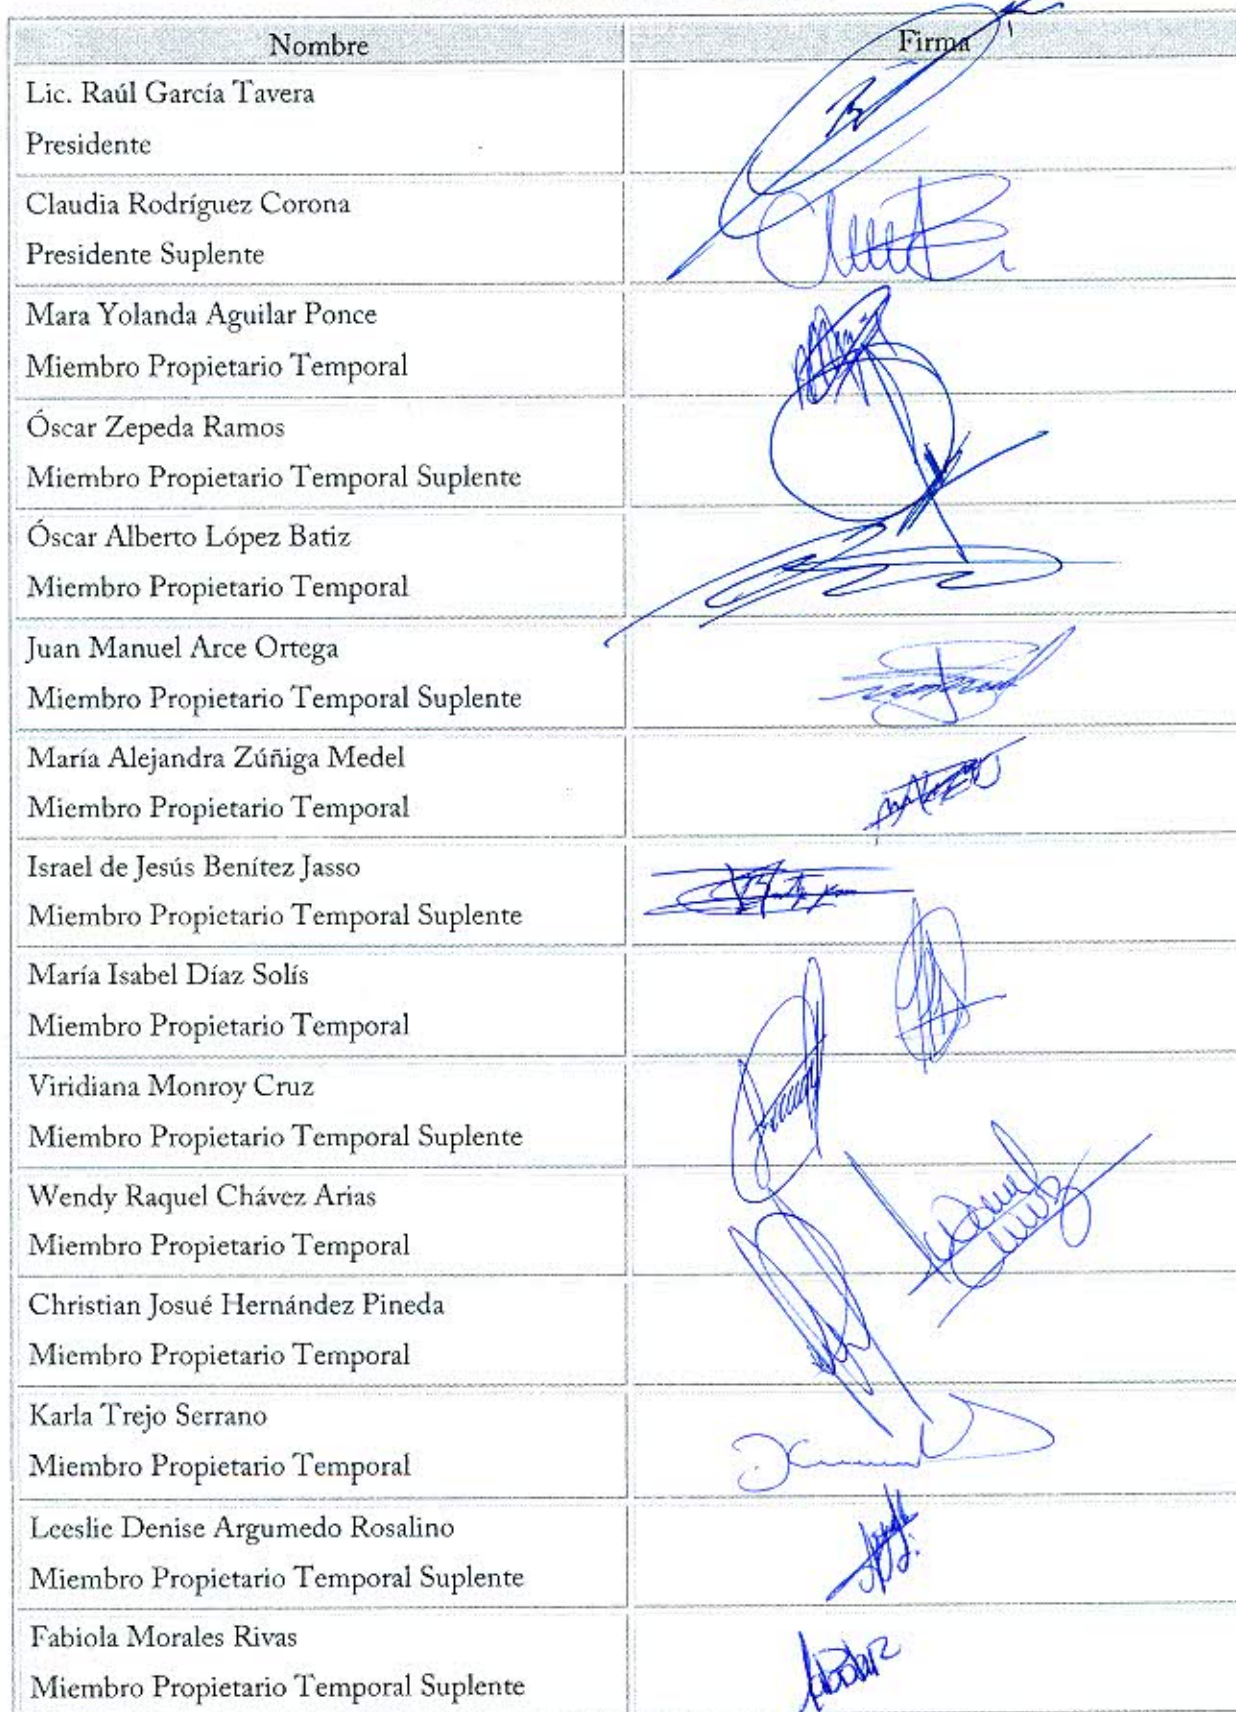 Nombre Firma
Lic. Raúl García Tavera
Presidente
Claudia Rodríguez Corona
Presidente Suplente
Mara Yolanda Aguilar Ponce
Miembro Propietario Temporal
Óscar Zepeda Ramos
Miembro Propietario Temporal Suplente
Óscar Alberto López Batiz
Miembro Propietario Temporal
Juan Manuel Arce Ortega
Miembro Propietario Temporal Suplente
María Alejandra Zúñiga Medel
Miembro Propietario Temporal
Israel de Jesús Benítez Jasso
Miembro Propietario Temporal Suplente
María Isabel Díaz Solís
Miembro Propietario Temporal
Viridiana Monroy Cruz
Miembro Propietario Temporal Suplente
Wendy Raquel Chávez Arias
Miembro Propietario Temporal
Christian Josué Hernández Pineda
Miembro Propietario Temporal
Karla Trejo Serrano
Miembro Propietario Temporal
Leeslie Denise Argumedo Rosalino
Miembro Propietario Temporal Suplente
Fabiola Morales Rivas
Miembro Propietario Temporal Suplente